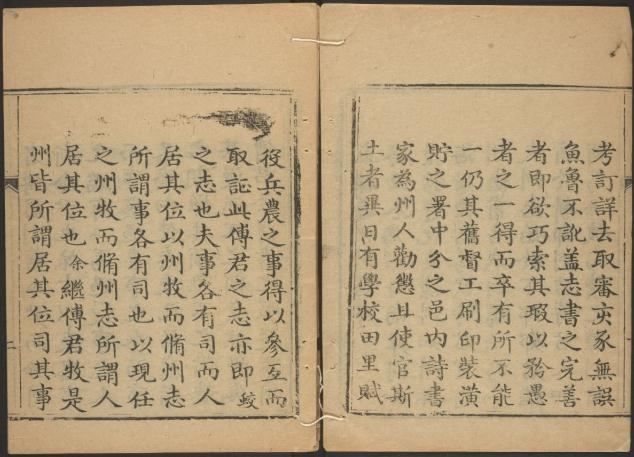 考訂詳去取審亥豕無誤
魚魯不訛盖志書之完善
者即欲巧索其瑕以矜愚
者之一得而卒有所不能
一仍其舊督工刷印裝潢
貯之署中分之邑内詩書
家為州人勸懲且使官斯
土者異日有學校田里賦
役兵農之事得以參互而
取証此傅君之志亦即蛟
之志也夫事各有司而人
居其位以州牧而脩州志
所謂事各有司也以現任
之州牧而脩州志所謂人
居其位也余繼傅君牧是
州皆所謂居其位司其事
二